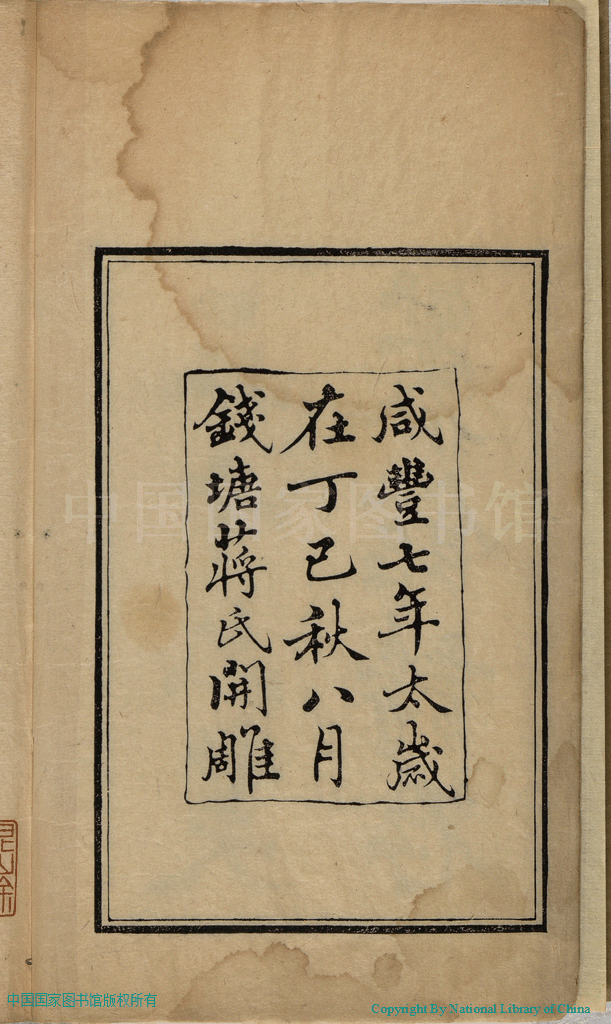 咸豐七年太歲
在丁巳秋八月
錢塘蔣氏開雕
中国国家图书馆
中国国家图书馆版权所有
Copyright By National Library of China